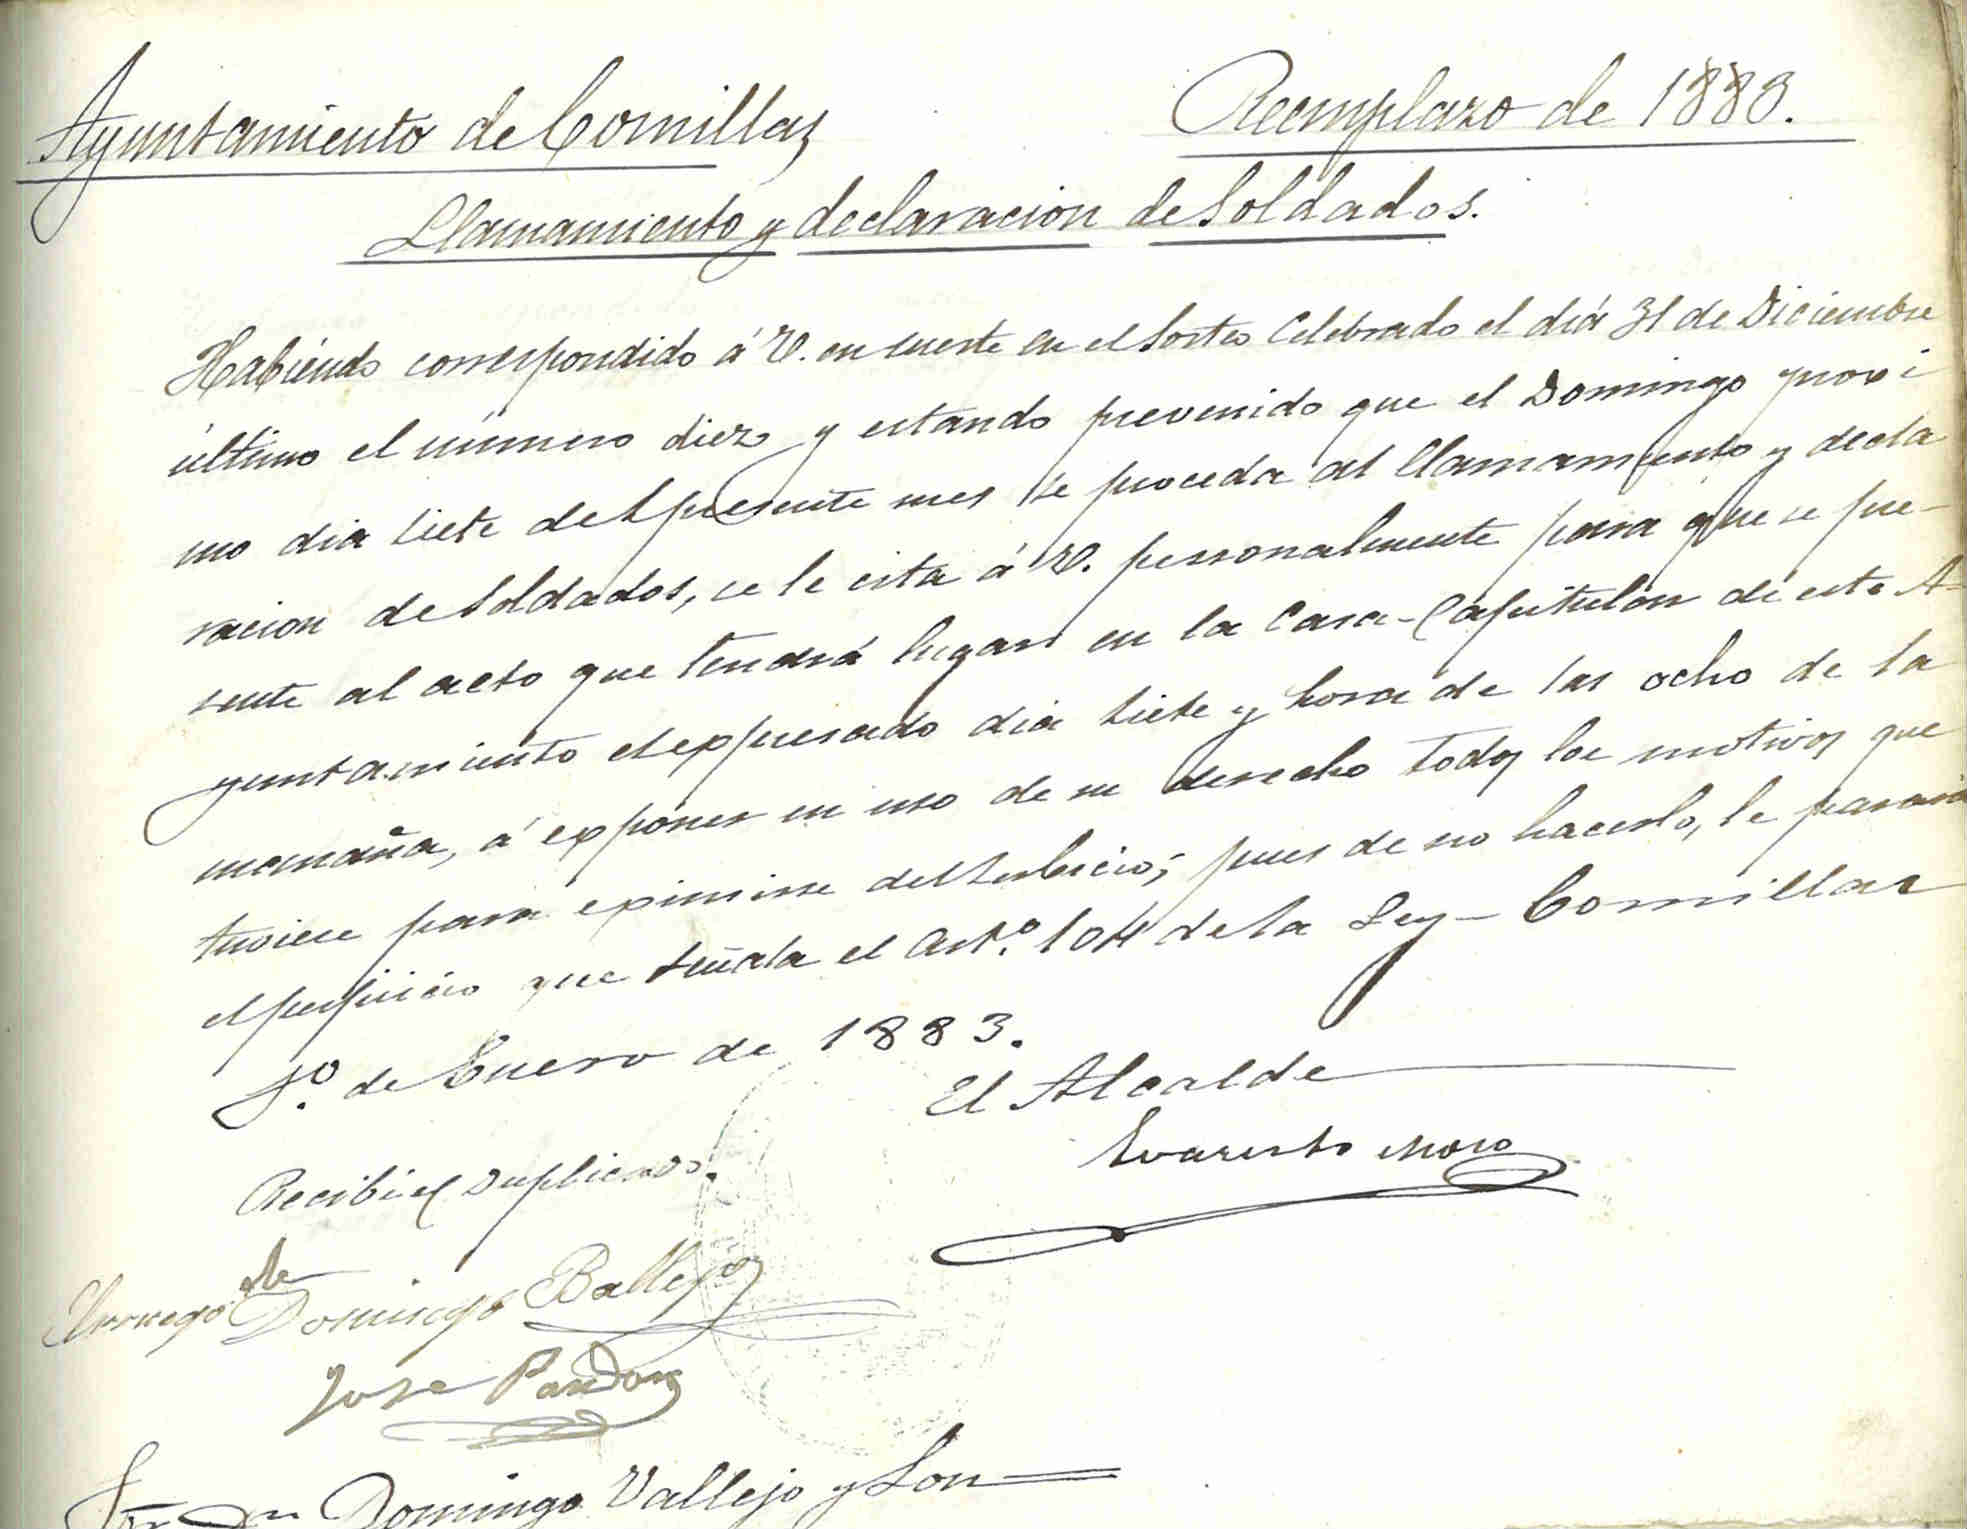 Ayuntamiento de Comillas
Reemplazo de 1883.
Llamamiento y declaracion de Soldados.
Habiendo correspondido á V. en suerte en el Sorteo Celebrado el dia 31 de Diciembre
último el número diez y estando prevenido que el Domingo proxi
mo dia siete del presente mes se proceda al llamamiento y decla
racion de Soldados, se le cita á V. personalmente para que se pre-
sente al acto que tendrá lugar en la Casa-Capitular de este A-
yuntamiento el expresado dia siete y hora de las ocho de la
mañana, á exponer en uso de su derecho todos los motivos que
tuviese para eximirse del Serbicio; pues de no hacerlo, le parará
el perjuicio que señala el Artº. 104 de la Ley - Comillas
1º. de Enero de 1883.
El Alcalde
Evaristo Moro
Recibi el Duplicado.
A ruego de Domingo Ballejo
Jose Pardo
Sr. Dn Domingo Vallejo y Son